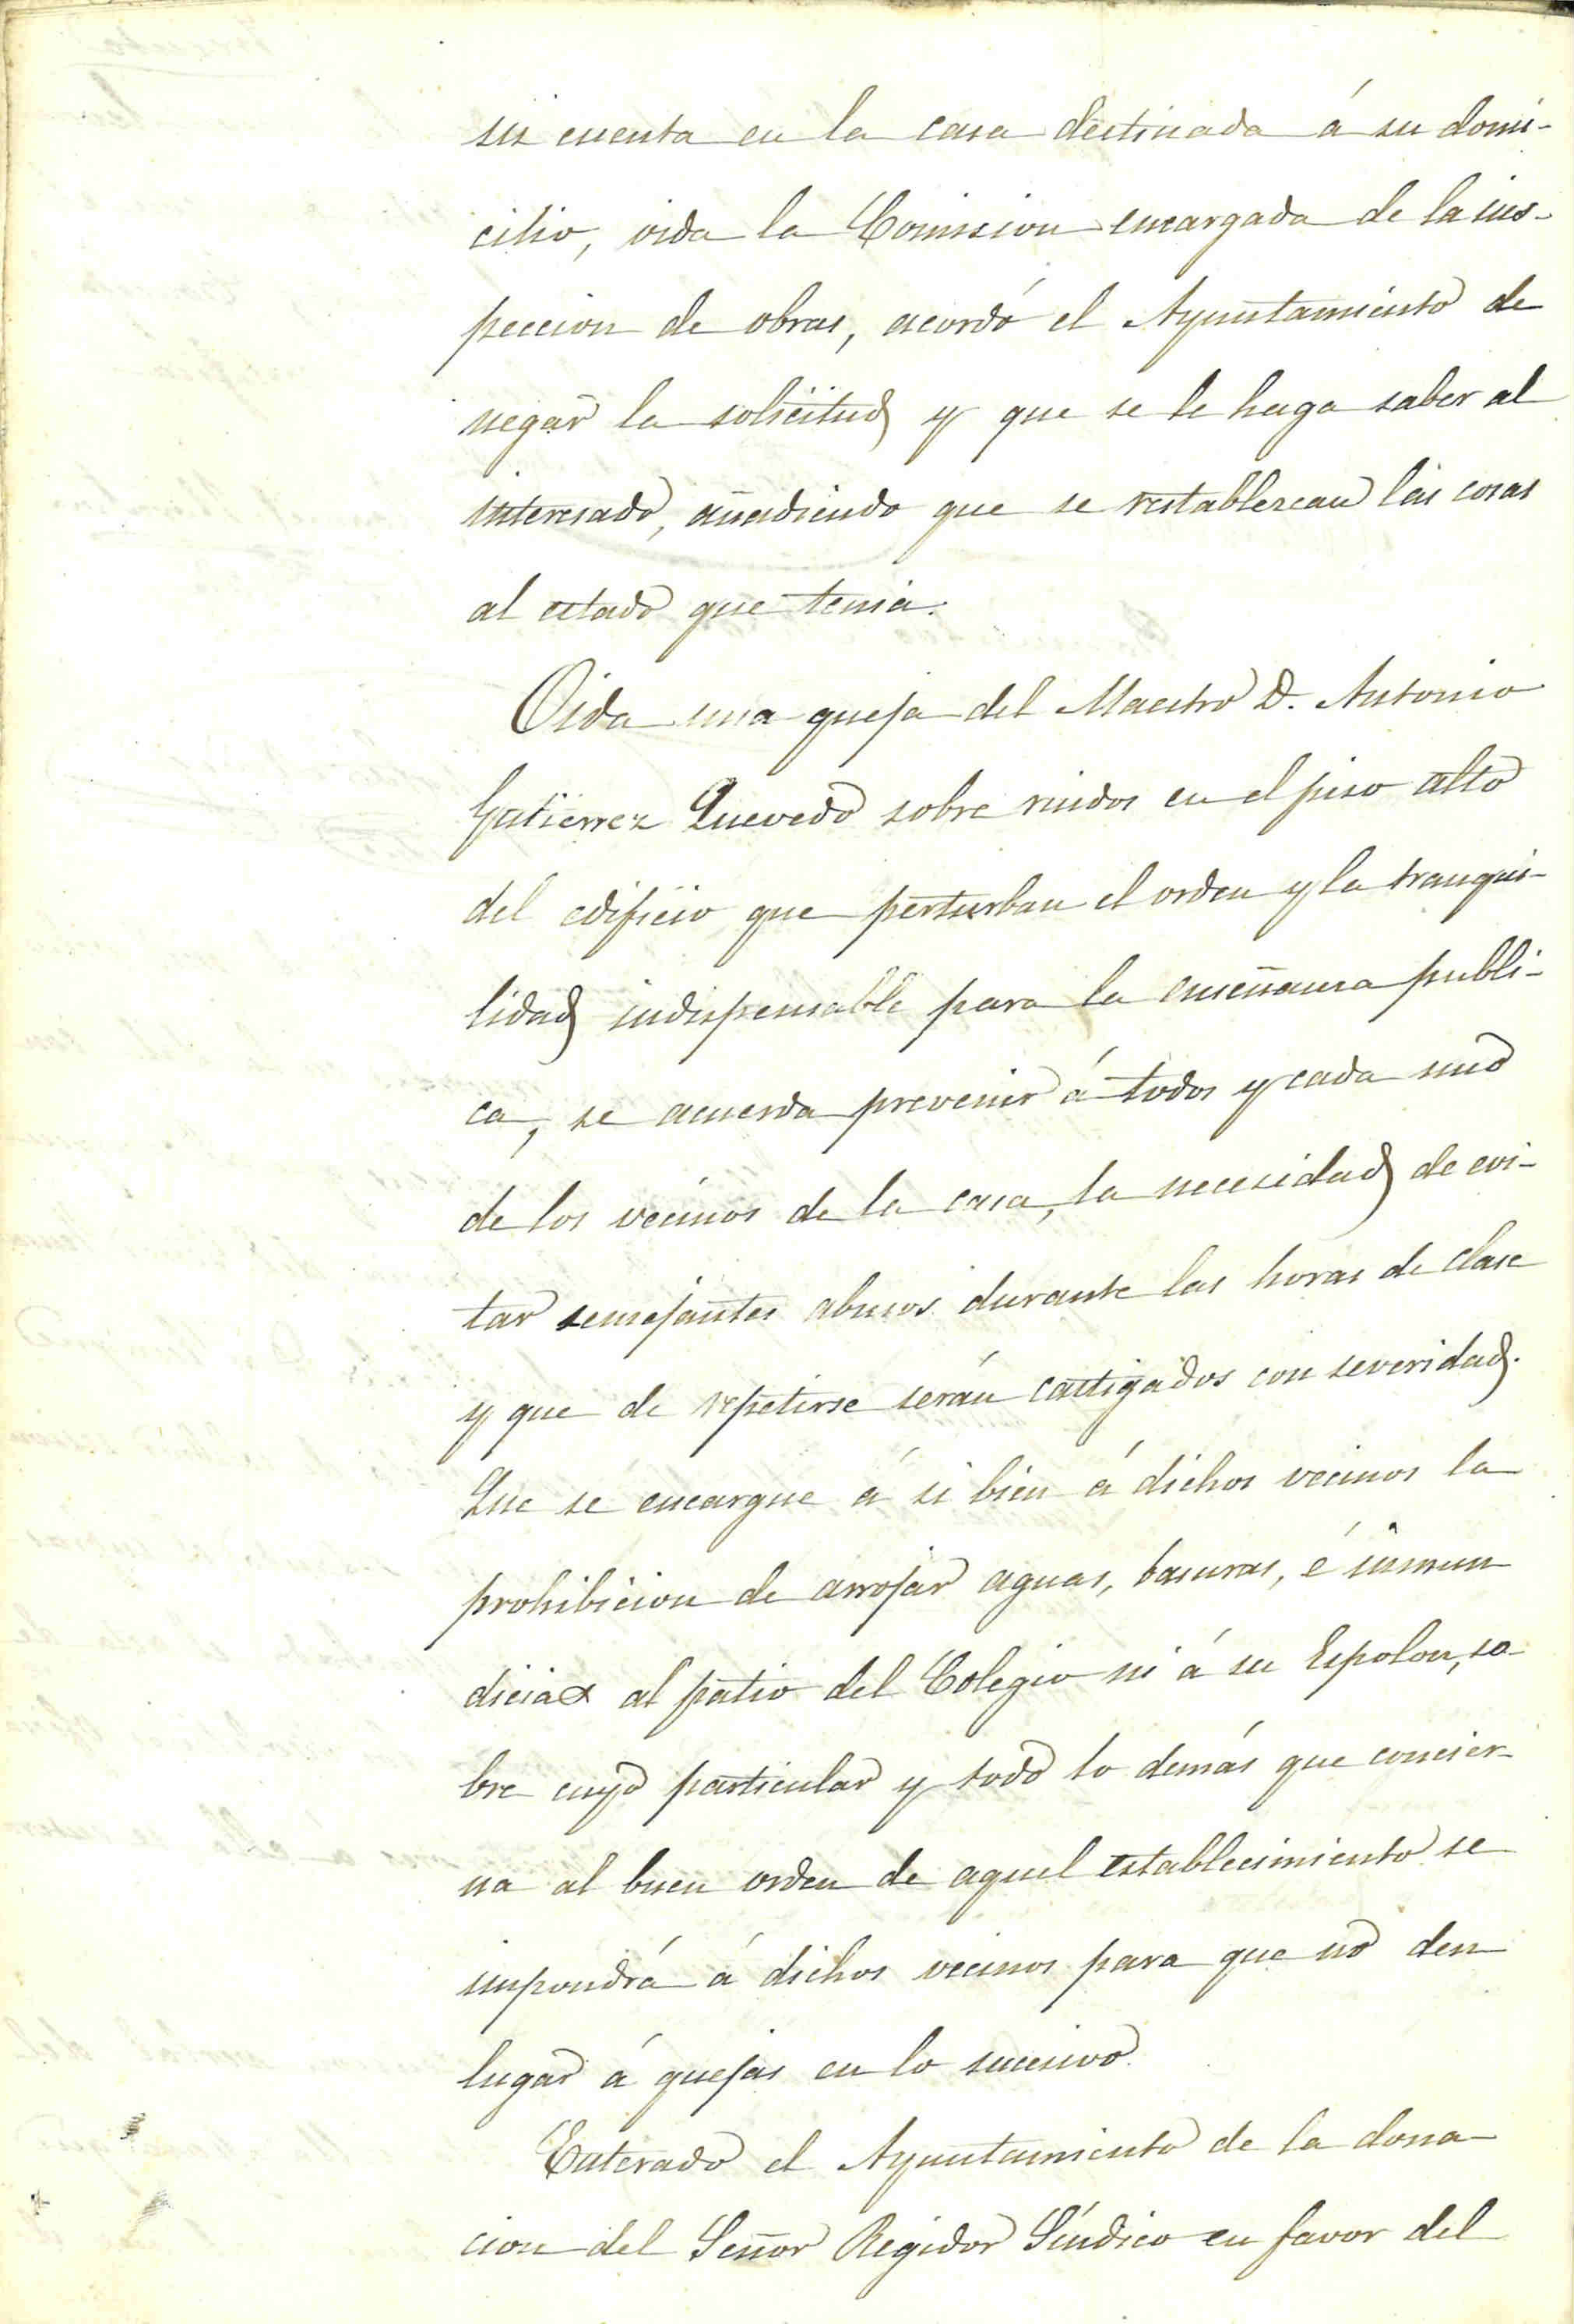 su cuenta en la casa destinada á su domi-
cilio, oida la Comision encargada de la ins-
peccion de obras, acordó el Ayuntamiento de
negar la solicitud y que se le haga saber al
interesado, añadiendo que se restablezcan las cosas
al estado que tenia.
Oida una queja del Maestro D. Antonio
Gutierrez Quevedo sobre ruidos en el piso alto
del edificio que perturban el orden y la tranqui-
lidad indispensable para la enseñanza publi-
ca, se acuerda prevenir á todos y cada uno
de los vecinos de la casa, la necesidad de evi-
tar semejantes abusos durante las horas de clase
y que de repetirse serán castigados con severidad.
Que se encargue á si bien á dichos vecinos la
prohibicion de arrojar aguas, basuras, é inmun
dicias al patio del Colegio ni á su Espolon, so-
bre cuyo particular y todo lo demás que concier-
na al buen orden de aquel establecimiento se
impondrá á dichos vecinos para que no den
lugar á quejas en lo sucesivo.
Enterado el Ayuntamiento de la dona-
cion del Señor Regidor Síndico en favor del